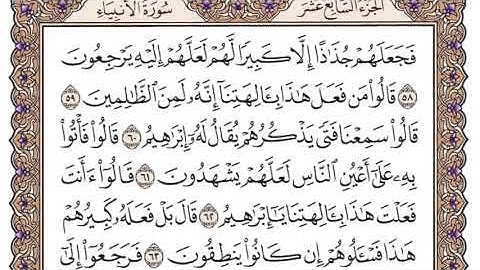 الجزء السابع عشر سورة الأنبياء
فَجَعَلَهُمْ جُذَٰذًا إِلَّا كَبِيرًا لَّهُمْ لَعَلَّهُمْ إِلَيْهِ يَرْجِعُونَ
٥٨ قَالُوا۟ مَن فَعَلَ هَٰذَا بِـَٔالِهَتِنَآ إِنَّهُۥ لَمِنَ ٱلظَّٰلِمِينَ ٥٩
قَالُوا۟ سَمِعْنَا فَتًى يَذْكُرُهُمْ يُقَالُ لَهُۥٓ إِبْرَٰهِيمُ ٦٠ قَالُوا۟ فَأْتُوا۟
بِهِۦ عَلَىٰٓ أَعْيُنِ ٱلنَّاسِ لَعَلَّهُمْ يَشْهَدُونَ ٦١ قَالُوٓا۟ ءَأَنتَ
فَعَلْتَ هَٰذَا بِـَٔالِهَتِنَا يَٰٓإِبْرَٰهِيمُ ٦٢ قَالَ بَلْ فَعَلَهُۥ كَبِيرُهُمْ
هَٰذَا فَسْـَٔلُوهُمْ إِن كَانُوا۟ يَنطِقُونَ ٦٣ فَرَجَعُوٓا۟ إِلَىٰٓ